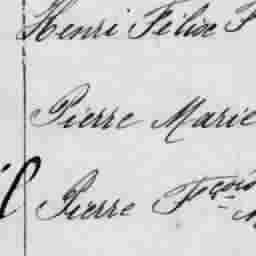 Henri Félix F
Pierre Marie
Pierre Fçois